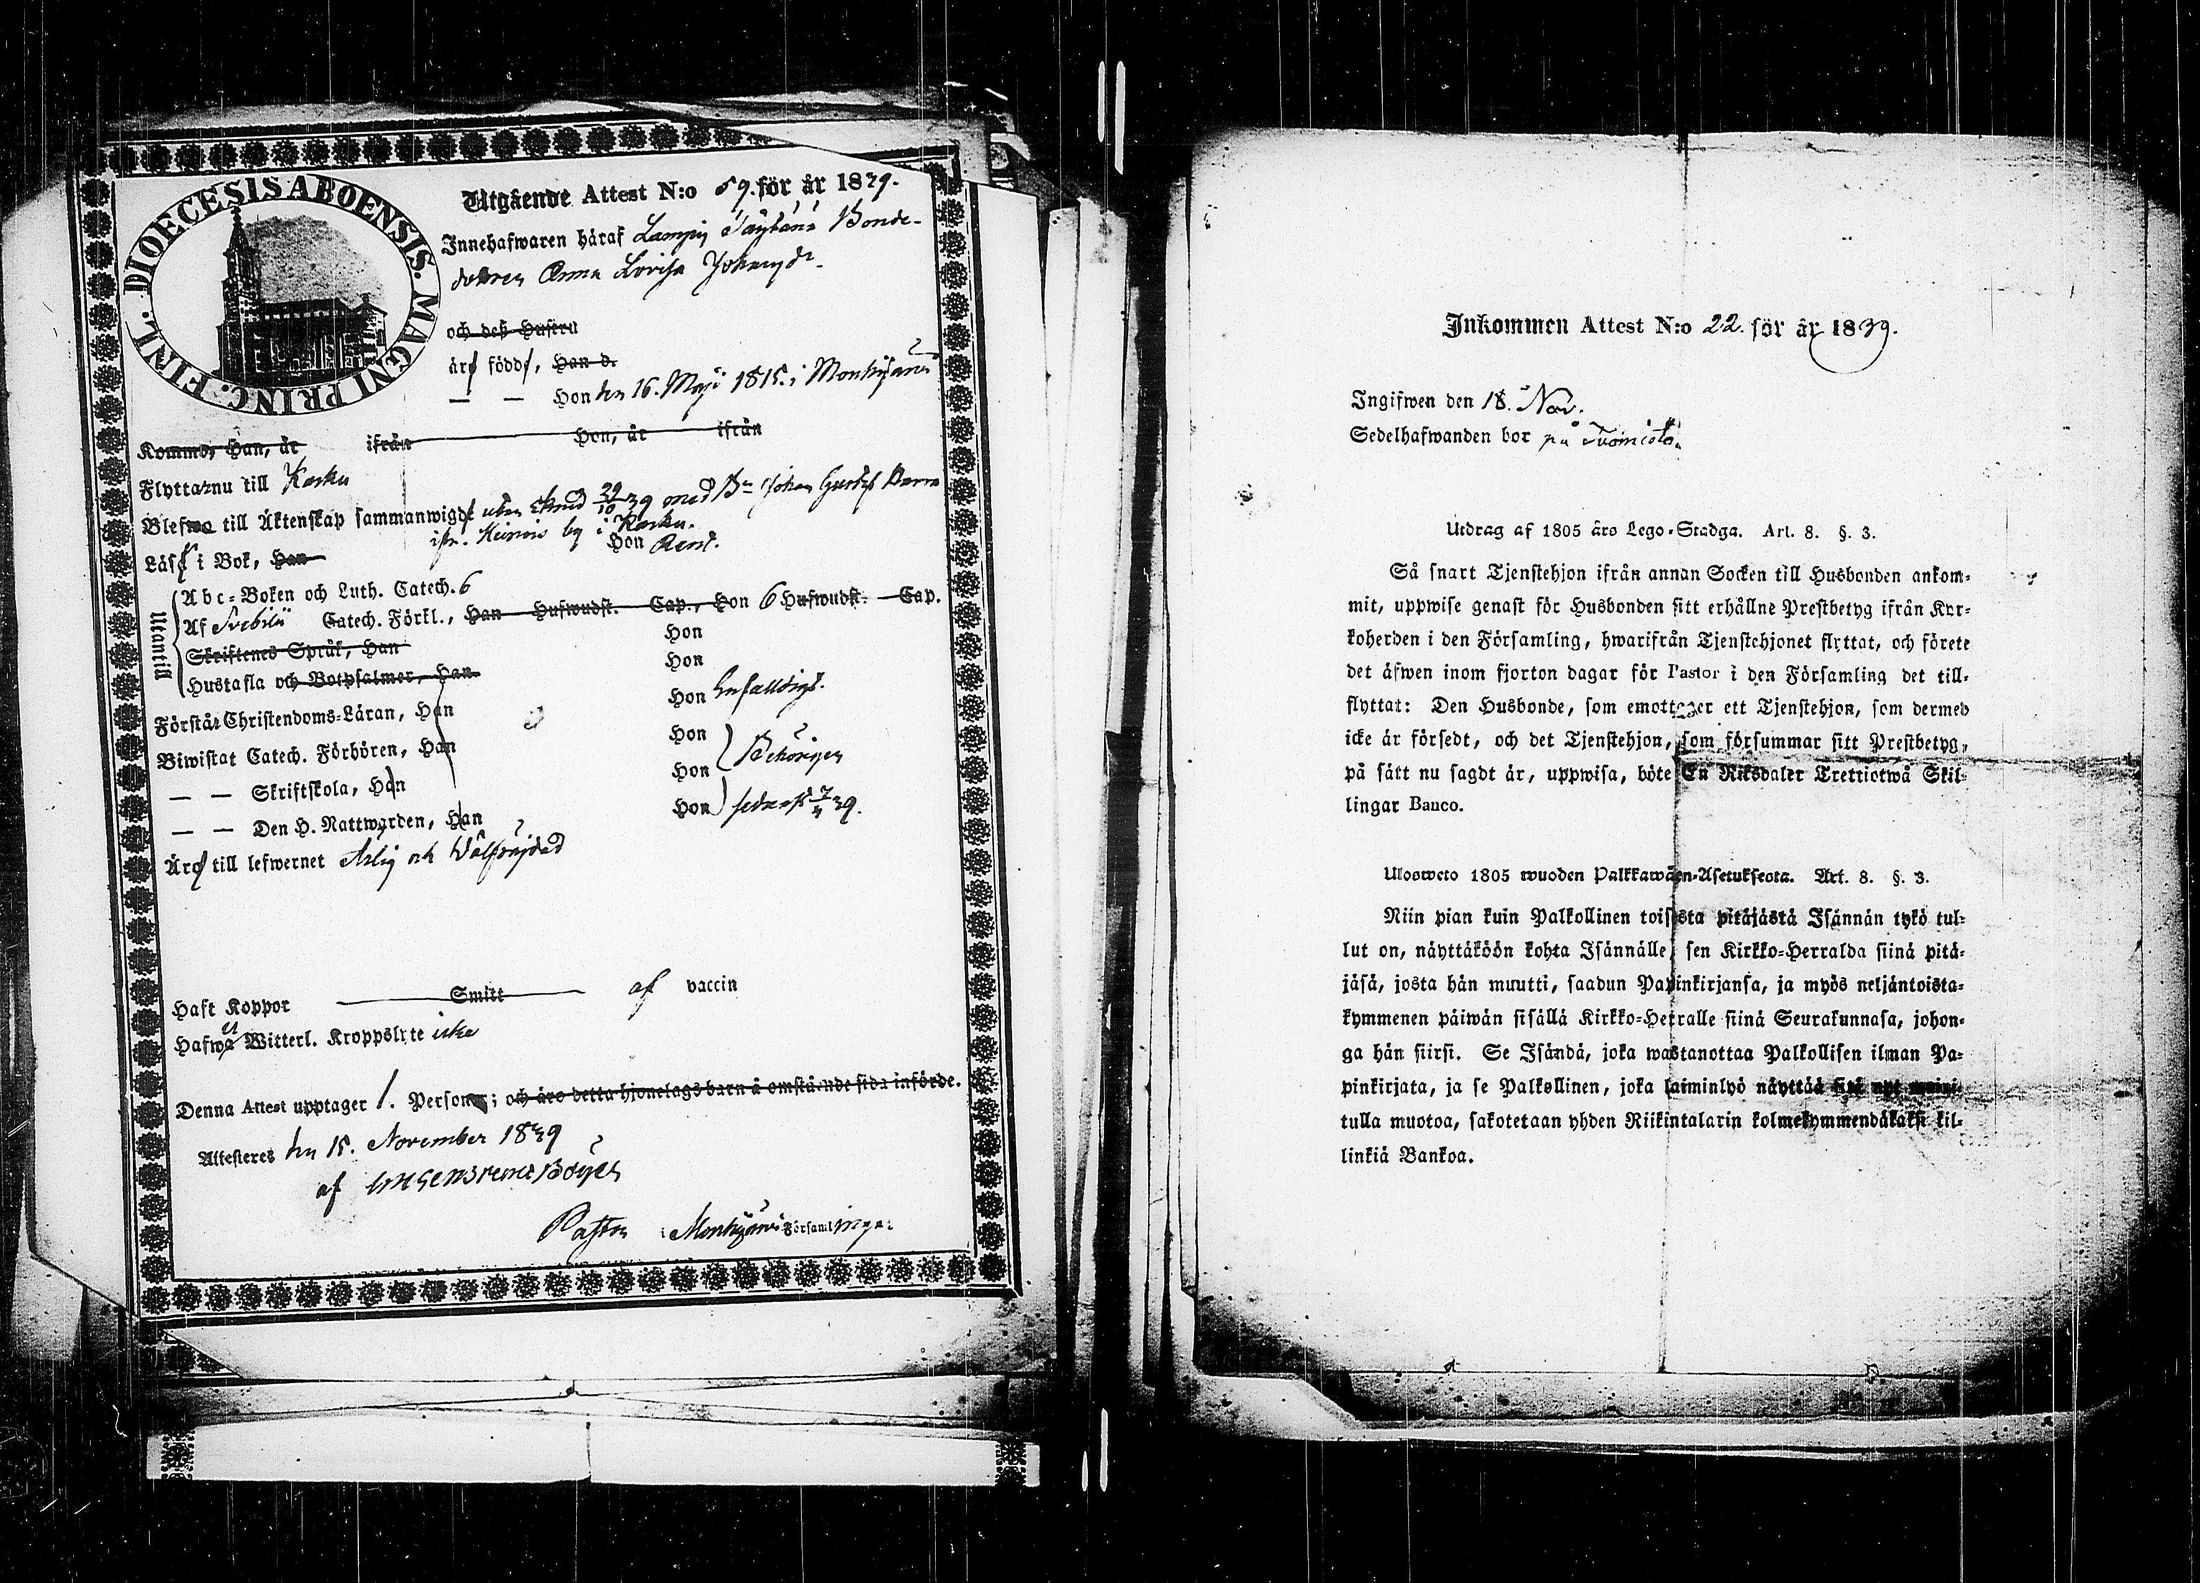 DIOECESIS ABOENSIS. MAGNI PRINC. FINL.
Utgående Attest N:o 59. för år 1839.
Innehafwaren häraf Lampis Bonde-
dottren Anna Lovisa Johansdr.
och deß Hustru
äro födde, Han d.
— — Hon den 16. Maji 1815. i Mouhijärvi
Komme, Han, år ifrån Hon, år ifrån
Flyttar nu till Karku
Blefwo till Äktenskap sammanwigde utan 29/10 39 med Johan Gustaf
ifr. by i Karku.
Läsa i Bok, Han Hon Rent.
Utantill
Abc-Boken och Luth. Catech. 6
Af Svebilii Catech. Förkl., Han Hufwudst. Cap., Hon 6 Hufwudst. Cap.
Skriftenes Språk, Han Hon
Hustafla och Botpsalmer, Han Hon
Förstår Christendoms-Läran, Han Hon Enfalldigt.
Biwistat Catech. Förhören, Han Hon
— — Skriftskola, Han Hon Behörigen
— — Den H. Nattwarden, Han Hon sednast
Äro till lefwernet Ärlig och Wälfräjdad
Haft Koppor Smitt af vaccin
Hafwa Witterl. Kroppslyte icke
Denna Attest upptager 1. Person; och äro detta hjonelags barn å omstående sida införde.
Attesteres den 15. November 1839
af
Pastor i Mouhijärvi Församlingar
Inkommen Attest N:o 22. för år 1839.
Ingifwen den 18. Nov.
Sedelhafwanden bor på Tuomisto.
Utdrag af 1805 års Lego-Stadga. Art. 8. §. 3.
Så snart Tjenstehjon ifrån annan Socken till Husbonden ankom-
mit, uppwise genast för Husbonden sitt erhållne Prestbetyg ifrån Kyr-
koherden i den Församling, hwarifrån Tjenstehjonet flyttat, och förete
det äfwen inom fjorton dagar för Pastor i den Församling det till-
flyttat: Den Husbonde, som emottager ett Tjenstehjon, som dermed
icke är försedt, och det Tjenstehjon, som försummar sitt Prestbetyg,
på sätt nu sagdt är, uppwisa, böte En Riksdaler Trettiotwå Skil-
lingar Banco.
Ulosweto 1805 wuoden Palkkawäen-Asetuksesta. Art. 8. §. 3.
Niin pian kuin Palkollinen toisesta pitäjästä Isännän tykö tul-
lut on, näyttäköön kohta Isännälle sen Kirkko-Herralda siinä pitä-
jäsä, josta hän muutti, saadun Papinkirjansa, ja myös neljäntoista-
kymmenen päiwän sisällä Kirkko-Herralle siinä Seurakunnasa, johon-
ga hän siirsi. Se Isändä, joka wastanottaa Palkollisen ilman Pa-
pinkirjata, ja se Palkollinen, joka laiminlyö näyttää sitä nyt maini-
tulla muotoa, sakotetaan yhden Riikintalarin kolmekymmendäkaksi kil-
linkiä Bankoa.